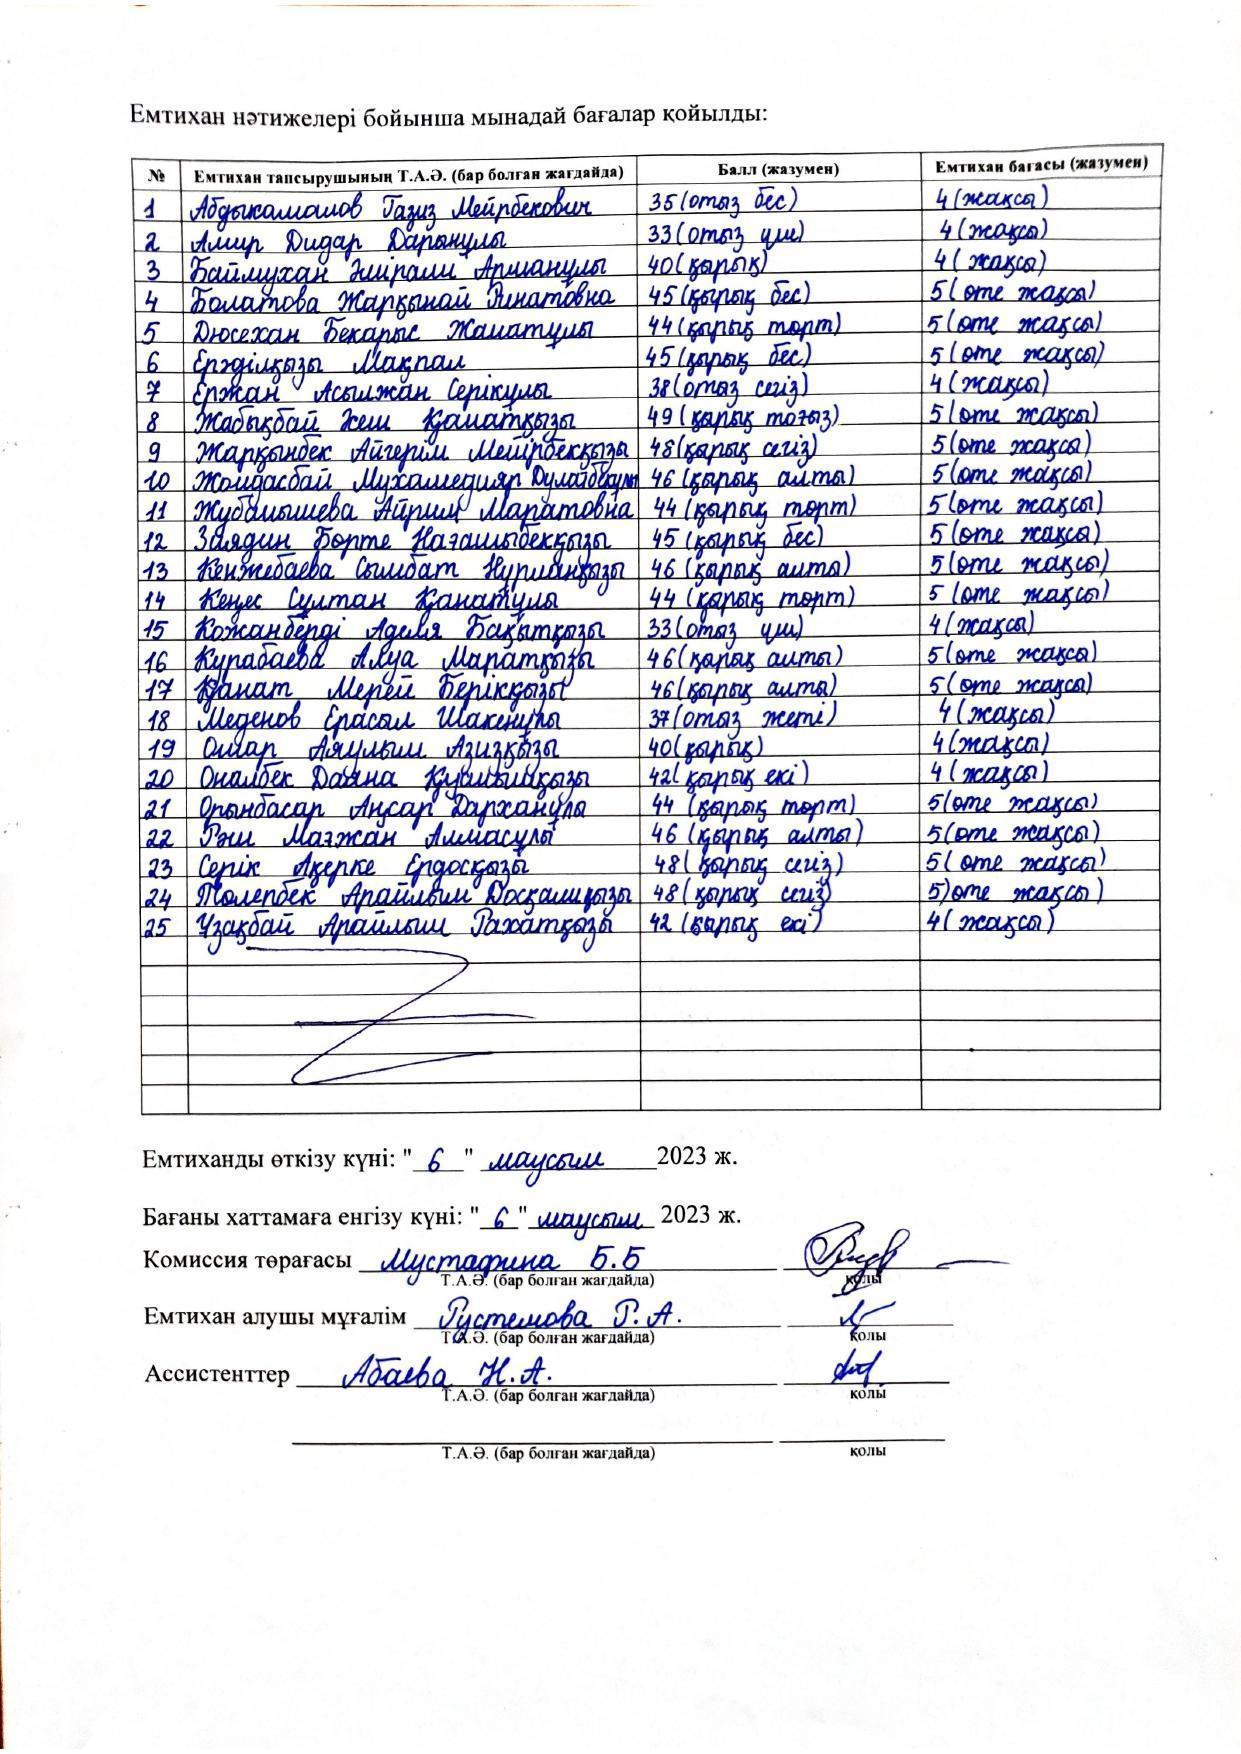 Емтихан нәтижелері бойынша мынадай бағалар қойылды:
№ Емтихан тапсырушының Т.А.Ә. (бар болған жағдайда) Балл (жазумен) Емтихан бағасы (жазумен)
1 Абдыкамалов Газиз Мейрбекович 35 (отыз бес) 4 (жақсы)
2 Амир Дидар Дарынұлы 33 (отыз үш) 4 (жақсы)
3 Баймұхан Әмірәли Арманұлы 40 (қырық) 4 (жақсы)
4 Болатова Жарқынай Ринатовна 45 (қырық бес) 5 (өте жақсы)
5 Дюсехан Бекарыс Жанатұлы 44 (қырық төрт) 5 (өте жақсы)
6 Ерәділқызы Мақпал 45 (қырық бес) 5 (өте жақсы)
7 Ержан Асылжан Серікұлы 38 (отыз сегіз) 4 (жақсы)
8 Жабықбай Қанатқызы 49 (қырық тоғыз) 5 (өте жақсы)
9 Жарқынбек Айгерім Мейірбекқызы 48 (қырық сегіз) 5 (өте жақсы)
10 Жолдасбай Мухамедияр Дулатбекұлы 46 (қырық алты) 5 (өте жақсы)
11 Жубанышева Айрим Маратовна 44 (қырық төрт) 5 (өте жақсы)
12 Заядин Бөрте Нағашыбекқызы 45 (қырық бес) 5 (өте жақсы)
13 Кенжебаева Сымбат Нурланқызы 46 (қырық алты) 5 (өте жақсы)
14 Кеңес Сұлтан Қанатұлы 44 (қырық төрт) 5 (өте жақсы)
15 Кожанберді Аделя Бақытқызы 33 (отыз үш) 4 (жақсы)
16 Курабаева Алуа Маратқызы 46 (қырық алты) 5 (өте жақсы)
17 Қанат Мерей Берікқызы 46 (қырық алты) 5 (өте жақсы)
18 Меденов Ерасыл Шакенұлы 37 (отыз жеті) 4 (жақсы)
19 Омар Аяулым Азизқызы 40 (қырық) 4 (жақсы)
20 Оналбек Даяна 42 (қырық екі) 4 (жақсы)
21 Орынбасар Аңсар Дарханұлы 44 (қырық төрт) 5 (өте жақсы)
22 Рәш Мағжан Алмасұлы 46 (қырық алты) 5 (өте жақсы)
23 Серік Ақерке Ердосқызы 48 (қырық сегіз) 5 (өте жақсы)
24 Төлепбек Арайлым Досқалиқызы 48 (қырық сегіз) 5)өте жақсы)
25 Ұзақбай Арайлым Рахатқызы 42 (қырық екі) 4 (жақсы)
Емтиханды өткізу күні: "6" маусым 2023 ж.
Бағаны хаттамаға енгізу күні: "6" маусым 2023 ж.
Комиссия төрағасы Мустафина Б.Б
Т.А.Ә. (бар болған жағдайда) қолы
Емтихан алушы мұғалім Рустемова Р.А.
Т.А.Ә. (бар болған жағдайда) қолы
Ассистенттер Абаева Н.А.
Т.А.Ә. (бар болған жағдайда) қолы
Т.А.Ә. (бар болған жағдайда) қолы